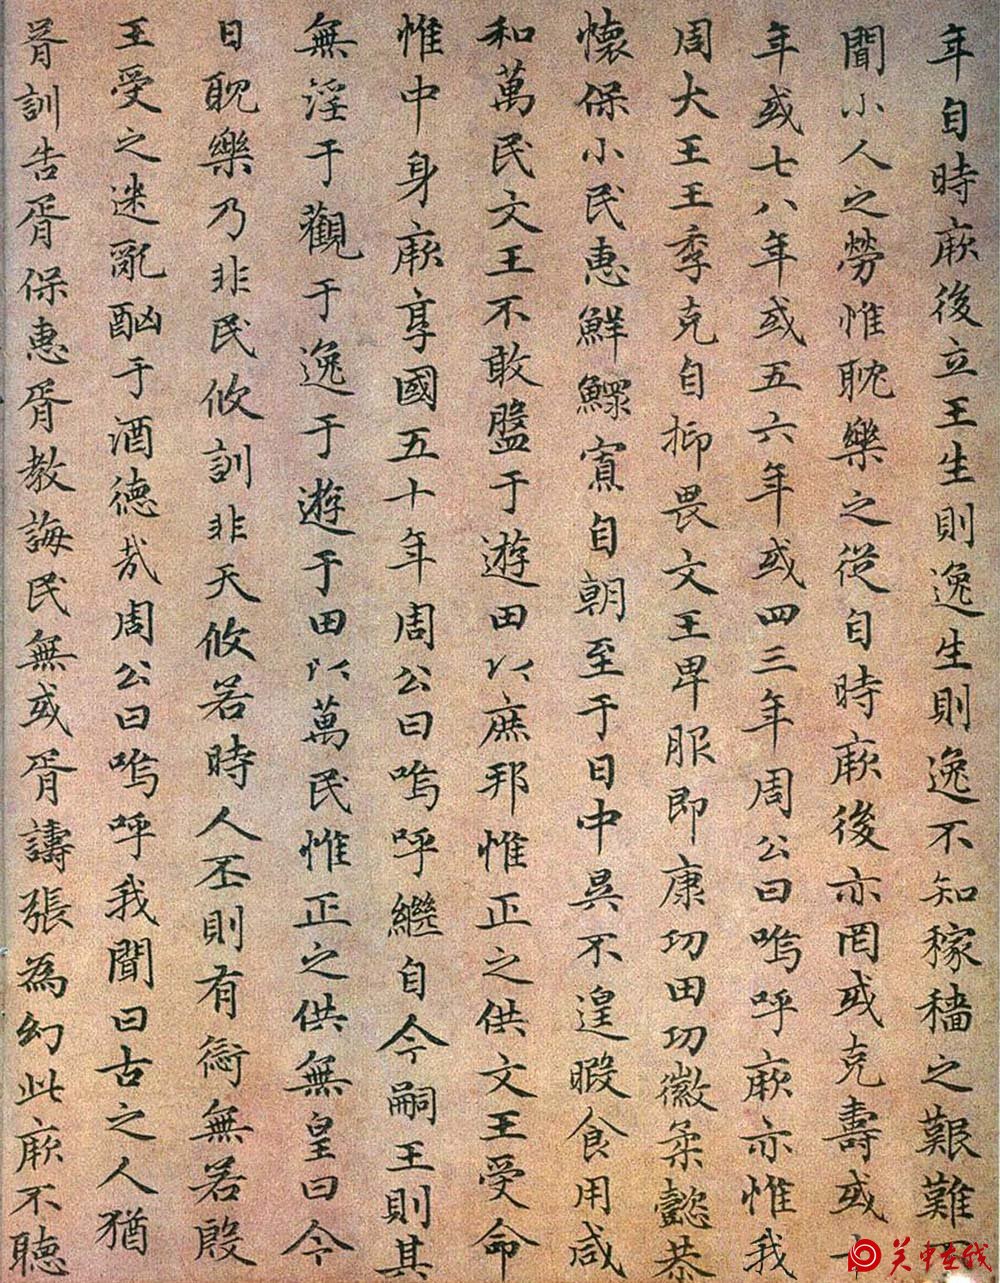 年自時厥後立王生則逸生則逸不知稼穡之艱難
聞小人之勞惟耽樂之從自時厥後亦罔或克壽或十
年或七八年或五六年或四三年周公曰嗚呼厥亦惟我
周大王王季克自抑畏文王卑服即康功田功徽柔懿恭
懷保小民惠鮮鰥寡自朝至于日中昃不遑暇食用咸
和萬民文王不敢盤于遊田以庶邦惟正之供文王受命
惟中身厥享國五十年周公曰嗚呼繼自今嗣王則其
無淫于觀于逸于遊于田以萬民惟正之供無皇曰今
日耽樂乃非民攸訓非天攸若時人丕則有愆無若殷
王受之迷亂酗于酒德哉周公曰嗚呼我聞曰古之人猶
胥訓告胥保惠胥教誨民無或胥譸張為幻此厥不聽
关中在线